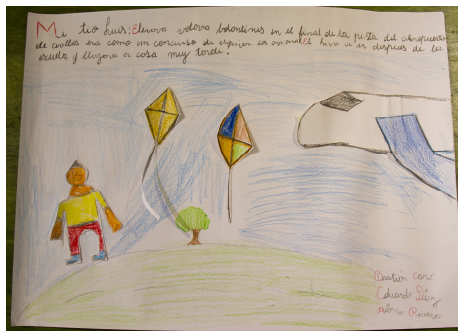 Mi tio Luis: Elevava volova bolantines en el final de la pista del aeropuerto
de cerrillos era como un concurso de esos animal El hiva a ir despues de la
escula y llegava a casa muy tarde.
Bastián Caro
Eduardo Díaz